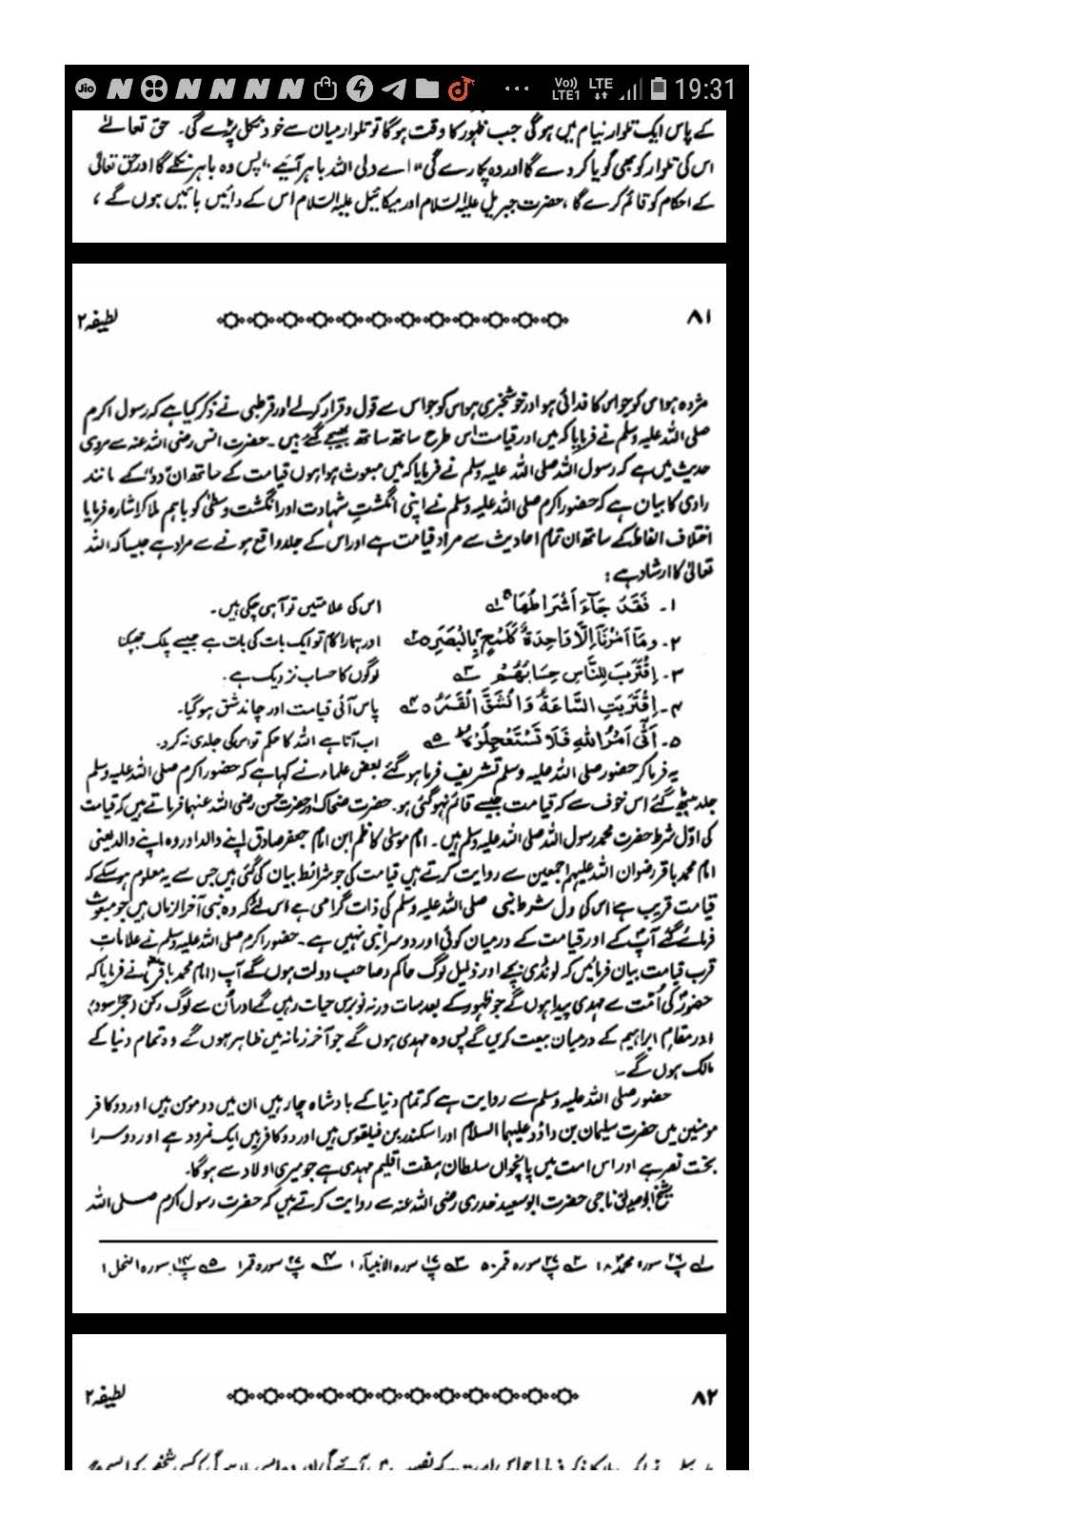 19:31
کے پاس ایک تلوار نیام میں ہوگی جب ظہور کا وقت ہوگا تو تلوار میان سے خود نکل پڑے گی۔ حق تعالےٰ
اس کی تلوار کو بھی گویا کر دے گا اور وہ پکارے گی "اے ولی اللہ باہر آئیے" پس وہ باہر نکلے گا اور حق تعالیٰ
کے احکام کو قائم کرے گا، حضرت جبریل علیہ السّلام اور میکائیل علیہ السّلام اس کے دائیں بائیں ہوں گے،
۸۱
لطیفہ ۲
مژدہ ہو اس کو جو اس کا فدائی ہو اور خوشخبری ہو اس کو جو اس سے قول و قرار کرلے اور قرطبی نے ذکر کیا ہے کہ رسول اکرم
صلی اللہ علیہ وسلم نے فرمایا کہ میں اور قیامت اس طرح ساتھ ساتھ بھیجے گئے ہیں۔ حضرت انس رضی اللہ عنہ سے مروی
حدیث میں ہے کہ رسول اللہ صلی اللہ علیہ وسلم نے فرمایا کہ میں مبعوث ہوا ہوں قیامت کے ساتھ ان "دو" کے مانند
راوی کا بیان ہے کہ حضور اکرم صلی اللہ علیہ وسلم نے اپنی انگشتِ شہادت اور انگشت وسطیٰ کو باہم ملا کر اشارہ فرمایا
اختلاف الفاظ کے ساتھ ان تمام احادیث سے مراد قیامت ہے اور اس کے جلد واقع ہونے سے مراد ہے جیسا کہ اللہ
تعالیٰ کا ارشاد ہے:
۱۔ فَقَدْ جَآءَ اَشْرَاطُهَا ۱ اس کی علامتیں تو آہی چکی ہیں۔
۲۔ وَمَآ اَمْرُنَآ اِلَّا وَاحِدَةٌ كَلَمْحٍ بِالْبَصَرِ ۲ اور ہمارا کام تو ایک بات کی بات ہے جیسے پلک جھپکنا
۳۔ اِقْتَرَبَ لِلنَّاسِ حِسَابُهُمْ ۳ لوگوں کا حساب نزدیک ہے۔
۴۔ اِقْتَرَبَتِ السَّاعَةُ وَانْشَقَّ الْقَمَرُ ۴ پاس آئی قیامت اور چاند شق ہوگیا۔
۵۔ اَتٰٓى اَمْرُ اللهِ فَلَا تَسْتَعْجِلُوْهُ ۵ اب آتا ہے اللہ کا حکم تو اس کی جلدی نہ کرو۔
یہ فرما کر حضور صلی اللہ علیہ وسلم تشریف فرما ہوگئے بعض علماء نے کہا ہے کہ حضور اکرم صلی اللہ علیہ وسلم
جلد بیٹھ گئے اس خوف سے کہ قیامت جیسے قائم ہوگئی ہو۔ حضرت ضحاک اور حضرت حسن رضی اللہ عنہما فرماتے ہیں کہ قیامت
کی اوّل شرط حضرت محمد رسول اللہ صلی اللہ علیہ وسلم ہیں۔ امام موسٰی کاظم ابن امام جعفر صادق اپنے والد اور وہ اپنے والد یعنی
امام محمد باقر رضوان اللہ علیہم اجمعین سے روایت کرتے ہیں قیامت کی جو شرائط بیان کی گئی ہیں جس سے یہ معلوم ہوسکے کہ
قیامت قریب ہے اس کی اول شرط نبی صلی اللہ علیہ وسلم کی ذات گرامی ہے اس لئے کہ وہ نبی آخرالزماں ہیں جو مبعوث
فرمائے گئے آپؐ کے اور قیامت کے درمیان کوئی اور دوسرا نبی نہیں ہے۔ حضور اکرم صلی اللہ علیہ وسلم نے علامات
قرب قیامت بیان فرمائیں کہ لونڈی بچے اور ذلیل لوگ حاکم و صاحب دولت ہوں گے آپ (امام محمد باقرؓ) نے فرمایا کہ
حضورؐ کی اُمت سے مہدی پیدا ہوں گے جو ظہور کے بعد سات ورنہ نو برس حیات رہیں گے اور اُن سے لوگ رکن (حجر اسود)
اور مقام ابراہیم کے درمیان بیعت کریں گے پس وہ مہدی ہوں گے جو آخر زمانہ میں ظاہر ہوں گے وہ تمام دنیا کے
مالک ہوں گے۔
حضور صلی اللہ علیہ وسلم سے روایت ہے کہ تمام دنیا کے بادشاہ چار ہیں ان میں دو مومن ہیں اور دو کافر
مومنین میں حضرت سلیمان بن داؤد علیہما السلام اور اسکندر بن فیلقوس ہیں اور دو کافر ہیں ایک نمرود ہے اور دوسرا
بخت نصر ہے اور اس امت میں پانچواں سلطان ہفت اقلیم مہدی ہے جو میری اولاد سے ہوگا۔
حضرت ابو سعید خدری رضی اللہ عنہ سے روایت کرتے ہیں کہ حضرت رسول اکرم صلی اللہ
۱ پ ۲۶ سورہ محمد ۱۸ ۲ پ ۲۷ سورہ قمر ۵۰ ۳ پ ۱۷ سورہ الانبیآء ۱ ۴ پ ۲۷ سورہ قمر ۱ ۵ پ ۱۴ سورہ النحل ۱
۸۲
لطیفہ ۲